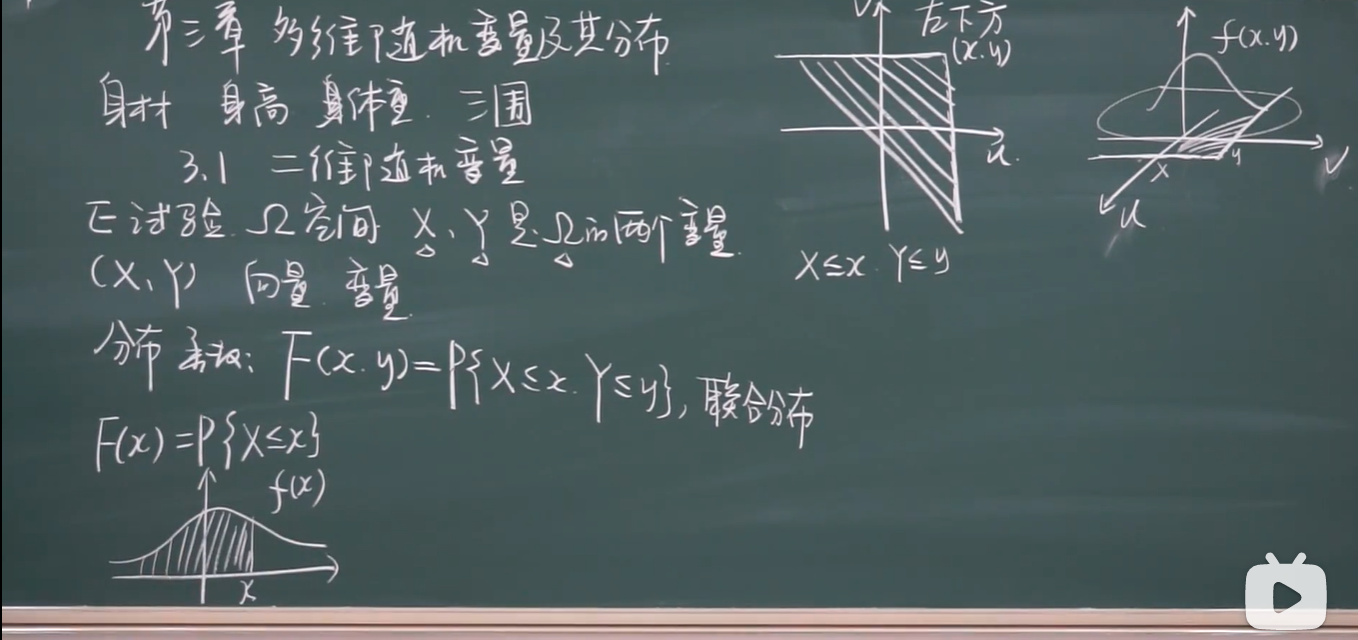 第三章 多维随机变量及其分布
身材 身高 身体重. 三围
3.1 二维随机变量
E试验. Ω空间 X、Y是Ω的两个变量.
(X、Y) 向量. 变量.
分布函数: F(x.y)=P{X≤x. Y≤y}, 联合分布
F(x)=P{X≤x}
f(x)
x
v
左下方
(x.y)
u.
X≤x. Y≤y
f(x.y)
x
y
v
u